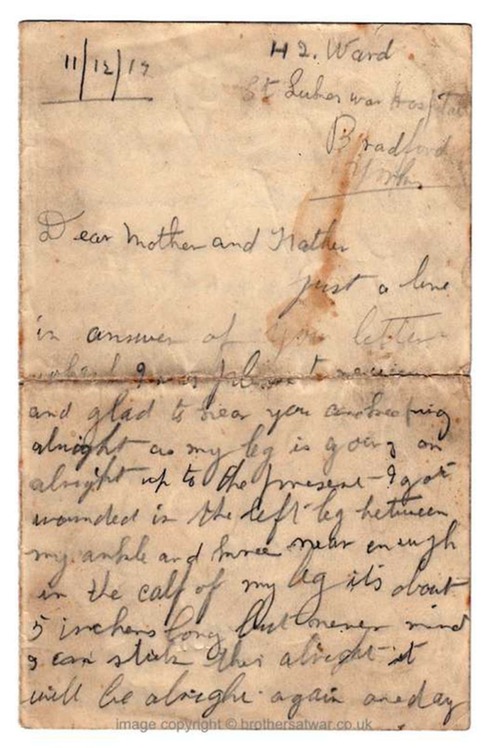 11/12/17
H2. Ward
St Lukes war Hospital
Bradford
Yorks.
Dear Mother and Father
just a line
in answer of you letter
which I was
and glad to hear you are keeping
alright as my leg is going on
alright up to the present I got
wounded in the left leg between
my ankle and knee near enough
in the calf of my leg it's about
5 inchens long but never mind
I can stick this alright it
will be alright again oneday
image copyright © brothersatwar.co.uk